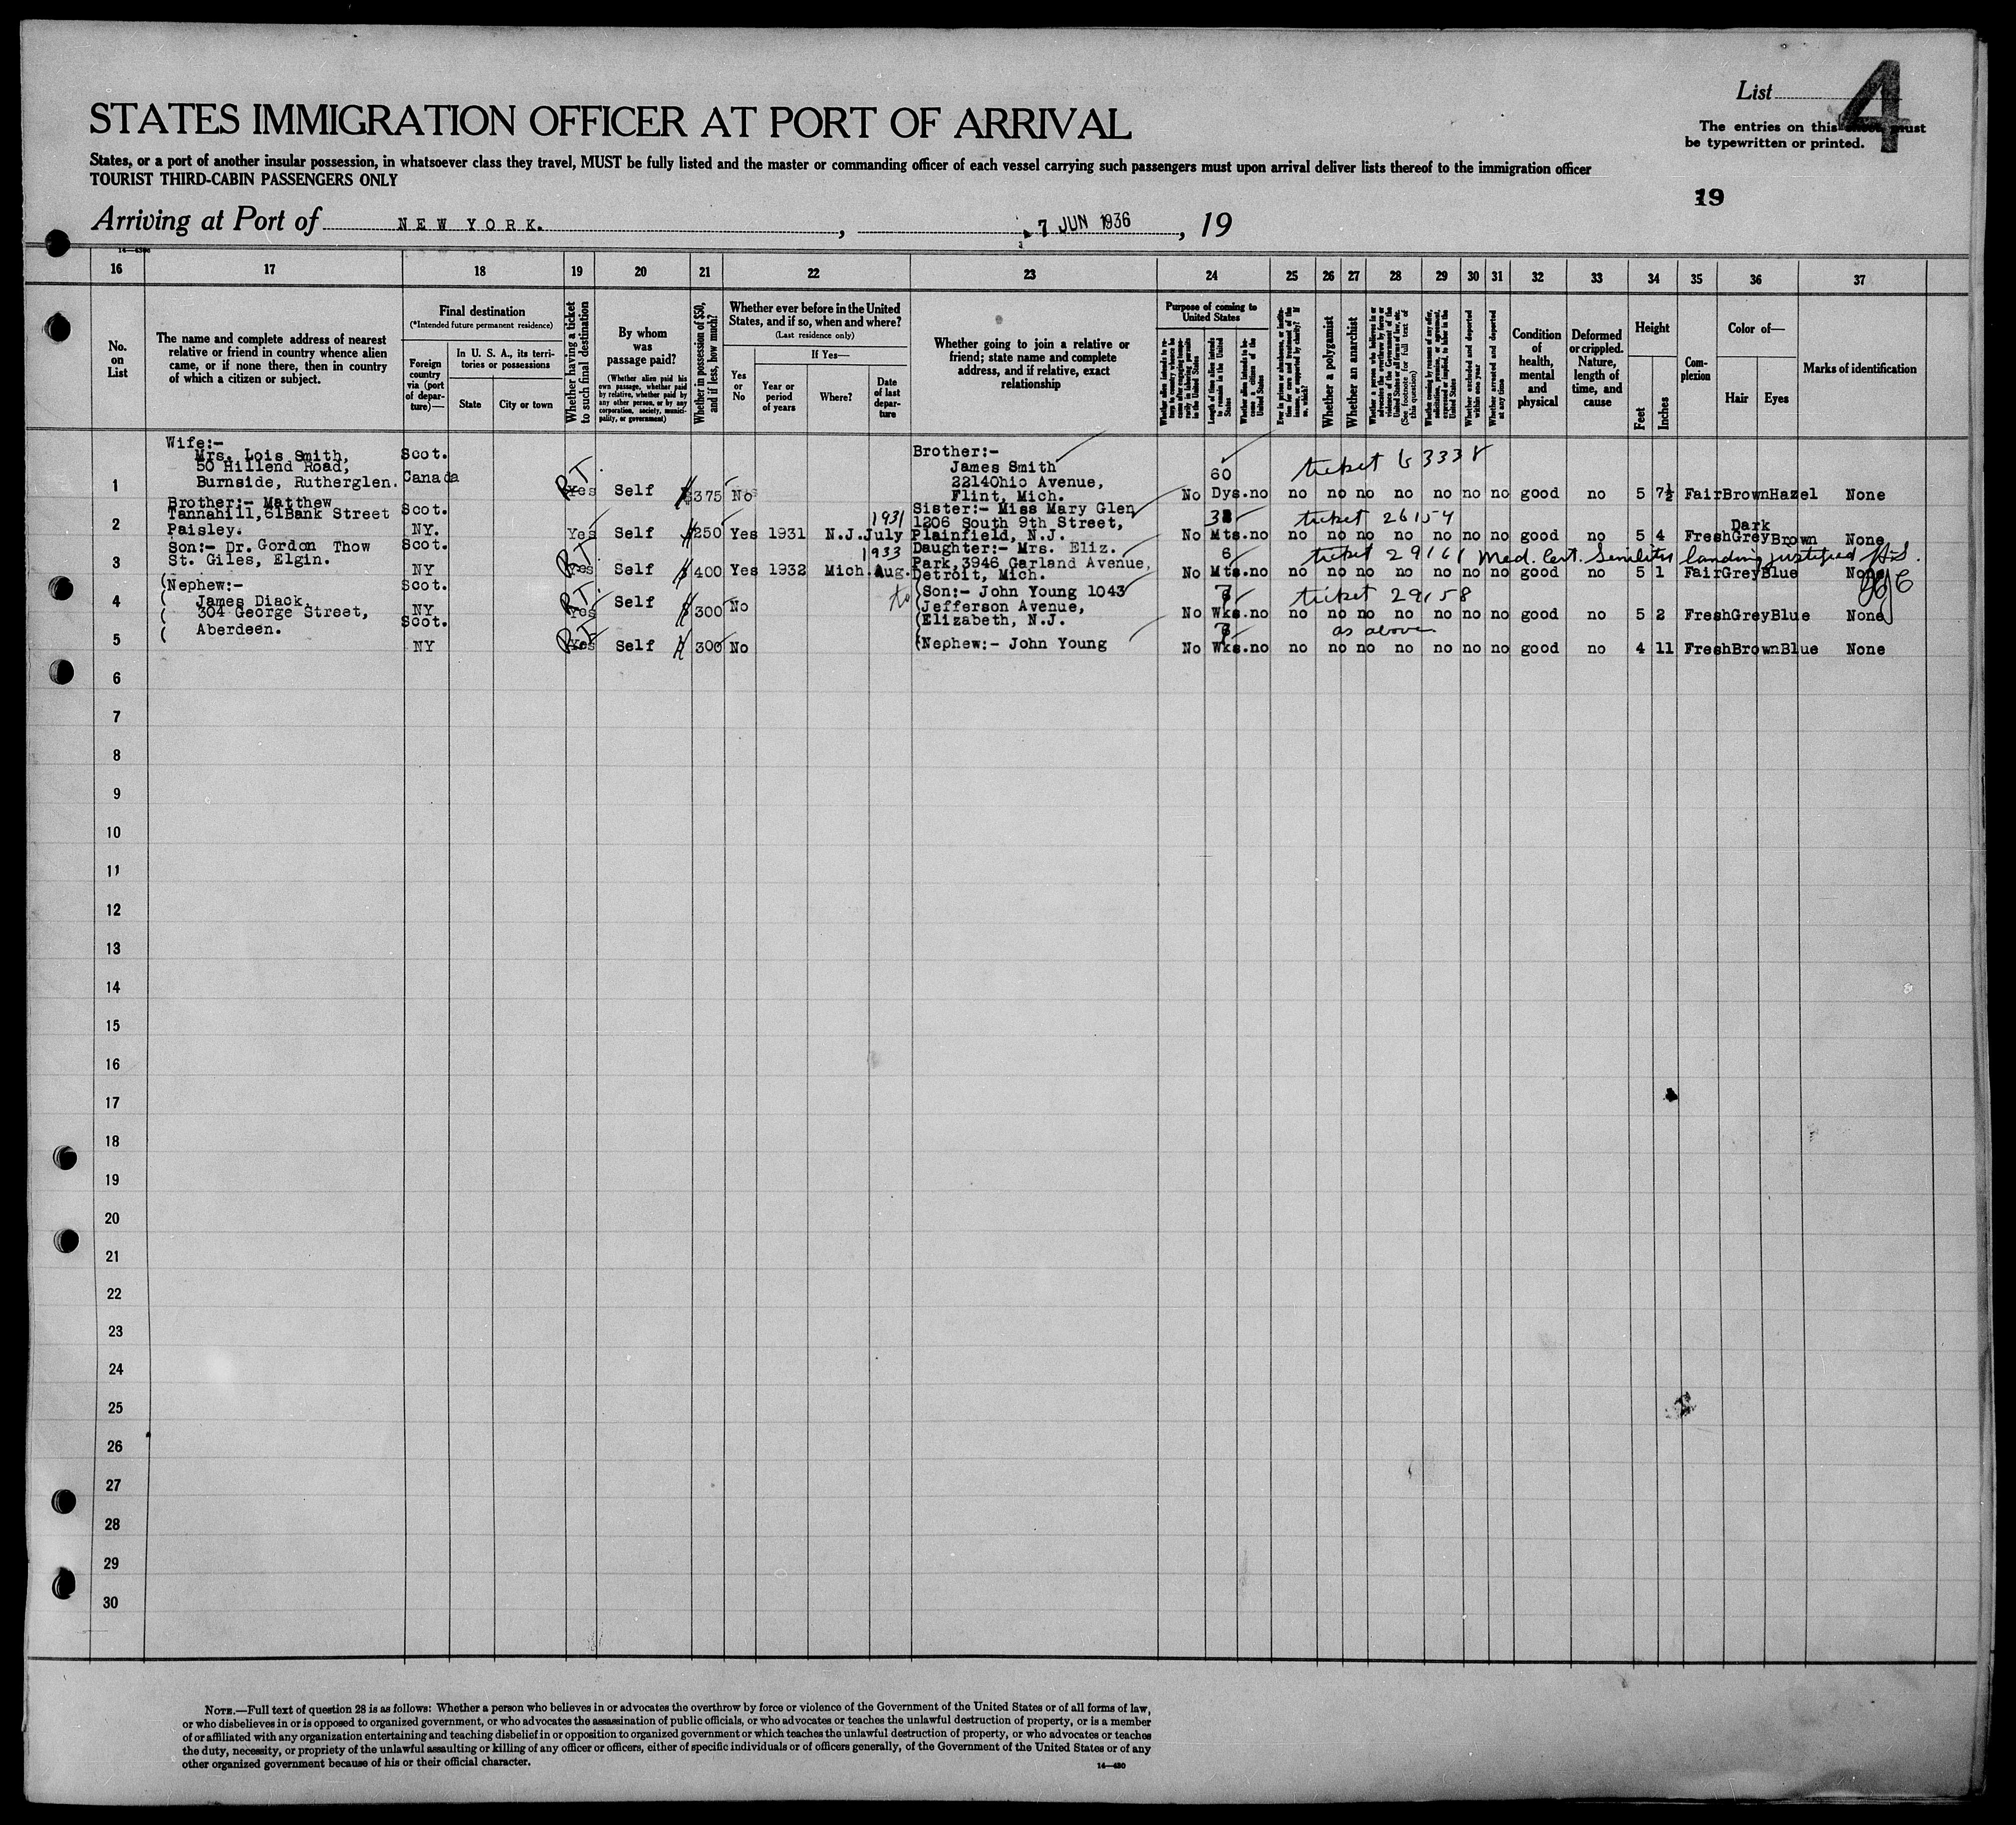 List 4
STATES IMMIGRATION OFFICER AT PORT OF ARRIVAL
The entries on this must
be typewritten or printed.
States, or a port of another insular possession, in whatsoever class they travel, MUST be fully listed and the master or commanding officer of each vessel carrying such passengers must upon arrival deliver lists thereof to the immigration officer
TOURIST THIRD-CABIN PASSENGERS ONLY
19
Arriving at Port of NEW YORK. , 7 JUN 1936 , 19
16 17 18 19 20 21 22 23 24 25 26 27 28 29 30 31 32 33 34 35 36 37
No.
on
List
The name and complete address of nearest
relative or friend in country whence alien
came, or if none there, then in country
of which a citizen or subject.
Final destination
(*Intended future permanent residence)
Foreign
country
via (port
of depar-
ture)—
In U. S. A., its terri-
tories or possessions
State City or town
Whether having a ticket
to such final destination
By whom
was
passage paid?
(Whether alien paid his
own passage, whether paid
by relative, whether paid by
any other person, or by any
corporation, society, munici-
pality, or government)
Whether in possession of $50,
and if less, how much?
Whether ever before in the United
States, and if so, when and where?
(Last residence only)
Yes
or
No
If Yes—
Year or
period
of years
Where?
Date
of last
depar-
ture
Whether going to join a relative or
friend; state name and complete
address, and if relative, exact
relationship
Purpose of coming to
United States
Whether alien intends to re-
turn to country whence he
came after engaging tempo-
rarily in laboring pursuits
in the United States
Length of time alien intends
to remain in the United
States
Whether alien intends to be-
come a citizen of the
United States
Ever in prison or almshouse, or institu-
tion for care and treatment of the
insane, or supported by charity? If
so, which?
Whether a polygamist
Whether an anarchist
Whether a person who believes in or
advocates the overthrow by force or
violence of the Government of the
United States or all forms of law, etc.
(See footnote for full text of
this question)
Whether coming by reason of any offer,
solicitation, promise, or agreement,
expressed or implied, to labor in the
United States
Whether excluded and deported
within one year
Whether arrested and deported
at any time
Condition
of
health,
mental
and
physical
Deformed
or crippled.
Nature,
length of
time, and
cause
Height
Feet Inches
Com-
plexion
Color of—
Hair Eyes
Marks of identification
1 Wife:-
Mrs. Lois Smith,
50 Hillend Road,
Burnside, Rutherglen. Scot. Canada R.T. Yes Self $375 No Brother:-
James Smith
2214Ohio Avenue,
Flint, Mich. No 60 Dys. no ticket 63338 no no no no no no no good no 5 7½ Fair Brown Hazel None
2 Brother:- Matthew
Tannahill, 61Bank Street
Paisley. Scot. NY. Yes Self $250 Yes 1931 N.J. July 1931 Sister:- Miss Mary Glen
1206 South 9th Street,
Plainfield, N.J. No Mts. no ticket 26154 no no no no no no no good no 5 4 Fresh Grey Dark Brown None
3 Son:- Dr. Gordon Thow
St. Giles, Elgin. Scot. NY R.T. Yes Self $400 Yes 1932 Mich. Aug. 1933 Daughter:- Mrs. Eliz.
Park, 3946 Garland Avenue,
Detroit, Mich. No 6 Mts. no ticket 29161 Med. Cert. landing justified no no no no no no no good no 5 1 Fair Grey Blue None
4 (Nephew:-
( James Diack,
( 304 George Street,
( Aberdeen. Scot. NY R.T. Yes Self $300 No (Son:- John Young 1043
(Jefferson Avenue,
(Elizabeth, N.J. No Wks. no ticket 29158 no no no no no no no good no 5 2 Fresh Grey Blue None
5 Scot. NY R.T. Yes Self $300 No (Nephew:- John Young No Wks. no as above no no no no no no no good no 4 11 Fresh Brown Blue None
6
7
8
9
10
11
12
13
14
15
16
17
18
19
20
21
22
23
24
25
26
27
28
29
30
NOTE.—Full text of question 28 is as follows: Whether a person who believes in or advocates the overthrow by force or violence of the Government of the United States or of all forms of law,
or who disbelieves in or is opposed to organized government, or who advocates the assassination of public officials, or who advocates or teaches the unlawful destruction of property, or is a member
of or affiliated with any organization entertaining and teaching disbelief in or opposition to organized government or which teaches the unlawful destruction of property, or who advocates or teaches
the duty, necessity, or propriety of the unlawful assaulting or killing of any officer or officers, either of specific individuals or of officers generally, of the Government of the United States or of any
other organized government because of his or their official character.
14—430